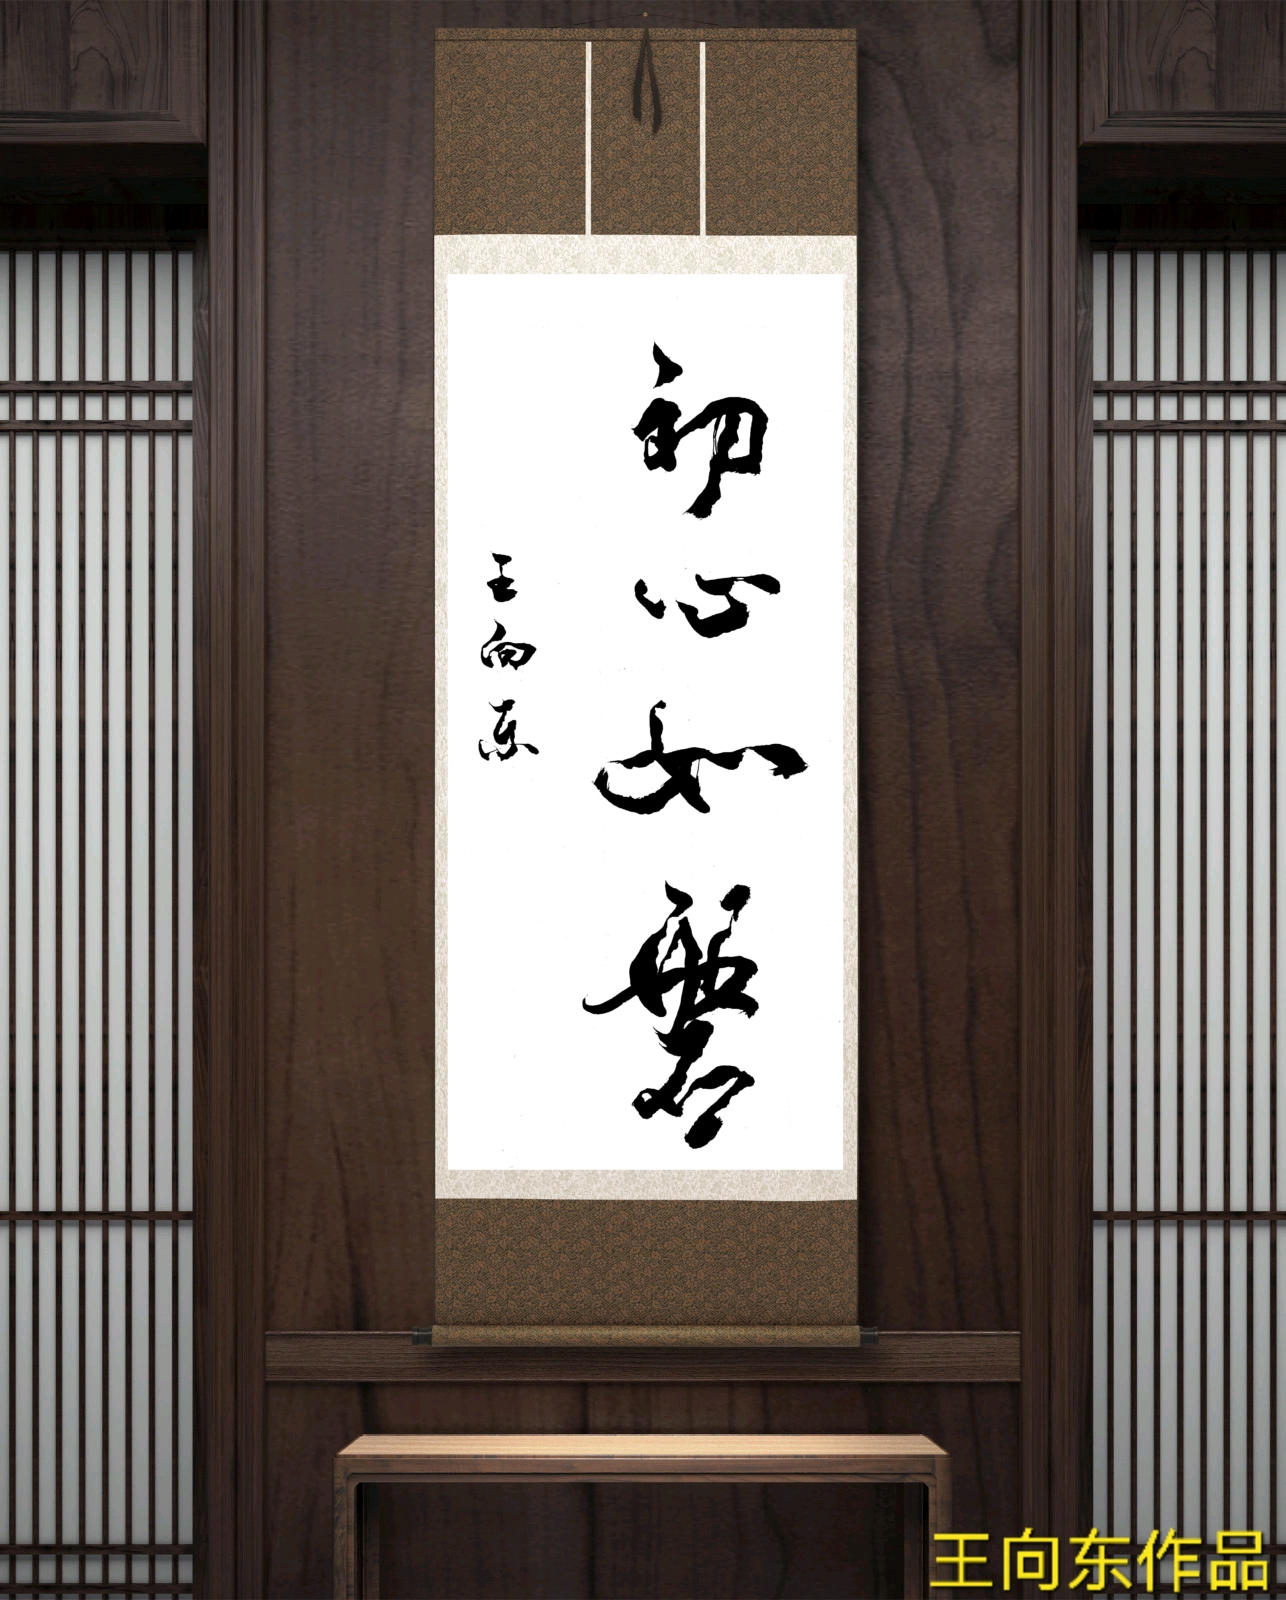 初心如磐
王向东
王向东作品